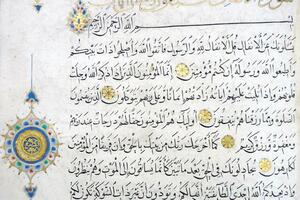 بسم الله الرحمن الرحيم
يسئلونك عن الانفال قل الانفال لله والرسول فاتقوا الله واصلحوا ذات بينكم
واطيعوا الله ورسوله ان كنتم مؤمنين انما المؤمنون الذين اذا ذكر الله وجلت
قلوبهم واذا تليت عليهم اياته زادتهم ايمانا وعلى ربهم يتوكلون الذين يقيمون
الصلوة ومما رزقناهم ينفقون اولئك هم المؤمنون حقا لهم درجات عند ربهم
ومغفرة ورزق كريم كما اخرجك ربك من بيتك بالحق وان فريقا من المؤمنين
لكارهون يجادلونك في الحق بعد ما تبين كانما يساقون الى الموت وهم ينظرون
واذ يعدكم الله احدى الطائفتين انها لكم وتودون ان غير ذات الشوكة تكون لكم